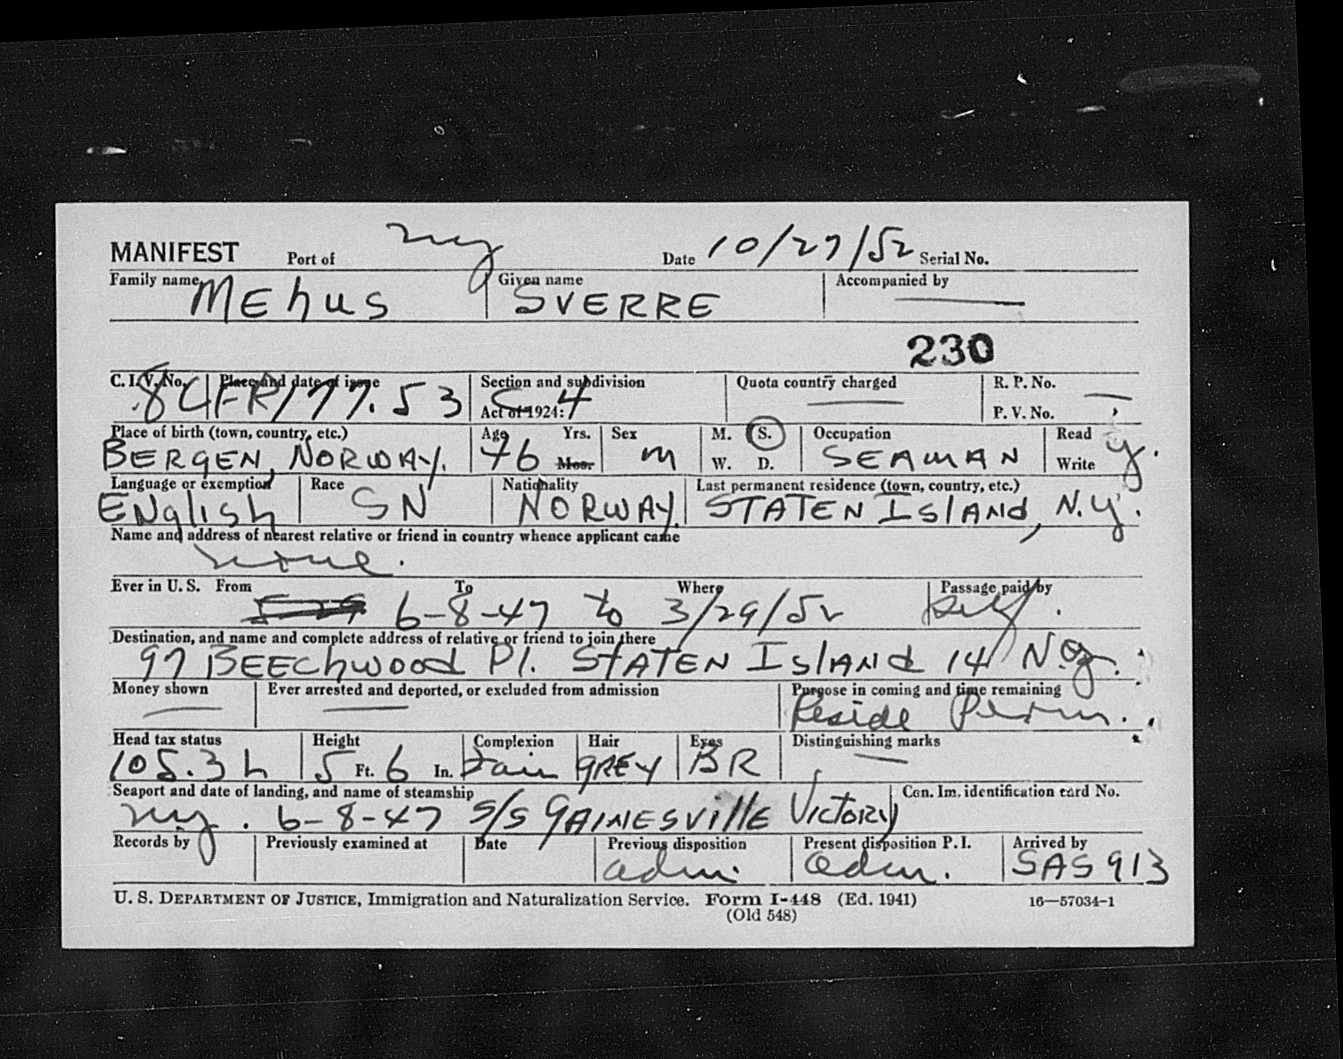 MANIFEST Port of NY Date 10/27/52 Serial No.
Family name MEhUS Given name SVERRE Accompanied by —
230
C. I. V. No. Place and date of issue 8CFR/177.53 Section and subdivision Act of 1924: 4 Quota country charged — R. P. No. — P. V. No.
Place of birth (town, country, etc.) BERGEN, NORWAY. Age 46 Yrs. Mos. Sex M M. S. W. D. Occupation SEAMAN Read Write y.
Language or exemption ENglish Race SN Nationality NORWAY. Last permanent residence (town, country, etc.) STATEN IslANd, N.Y.
Name and address of nearest relative or friend in country whence applicant came
none.
Ever in U. S. From 6-8-47 To to Where 3/29/52 Passage paid by self.
Destination, and name and complete address of relative or friend to join there
97 BEEchwood Pl. STATEN IslANd 14 N.Y.
Money shown — Ever arrested and deported, or excluded from admission — Purpose in coming and time remaining Reside Perm.
Head tax status 105.3h Height 5 Ft. 6 In. Complexion Fair Hair GREY Eyes BR Distinguishing marks —
Seaport and date of landing, and name of steamship N.Y. 6-8-47 S/S GAINESVillE VICTORY Con. Im. identification card No.
Records by Previously examined at Date Previous disposition adm. Present disposition P. I. adm. Arrived by SAS 913
U. S. DEPARTMENT OF JUSTICE, Immigration and Naturalization Service. Form I-448 (Ed. 1941) 16—57034-1
(Old 548)